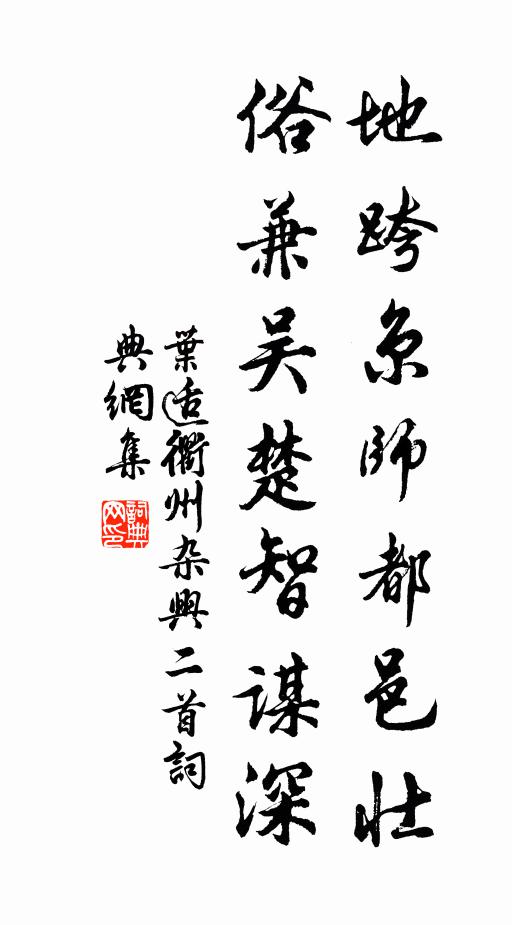 地跨京師都邑壯
俗兼吴楚智謀深
葉适衢州杂興二首詞
典網集
詞典
网印